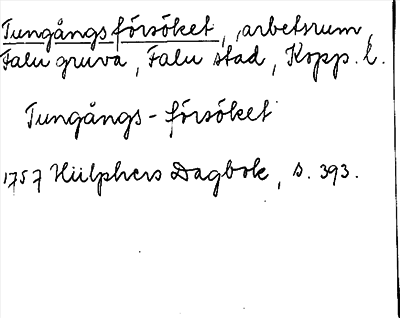 Tungångsförsöket, arbetsrum,
Falu gruva, Falu stad, Kopp. l.
Tungångs-försöket
1757 Hülphers Dagbok, s. 393.